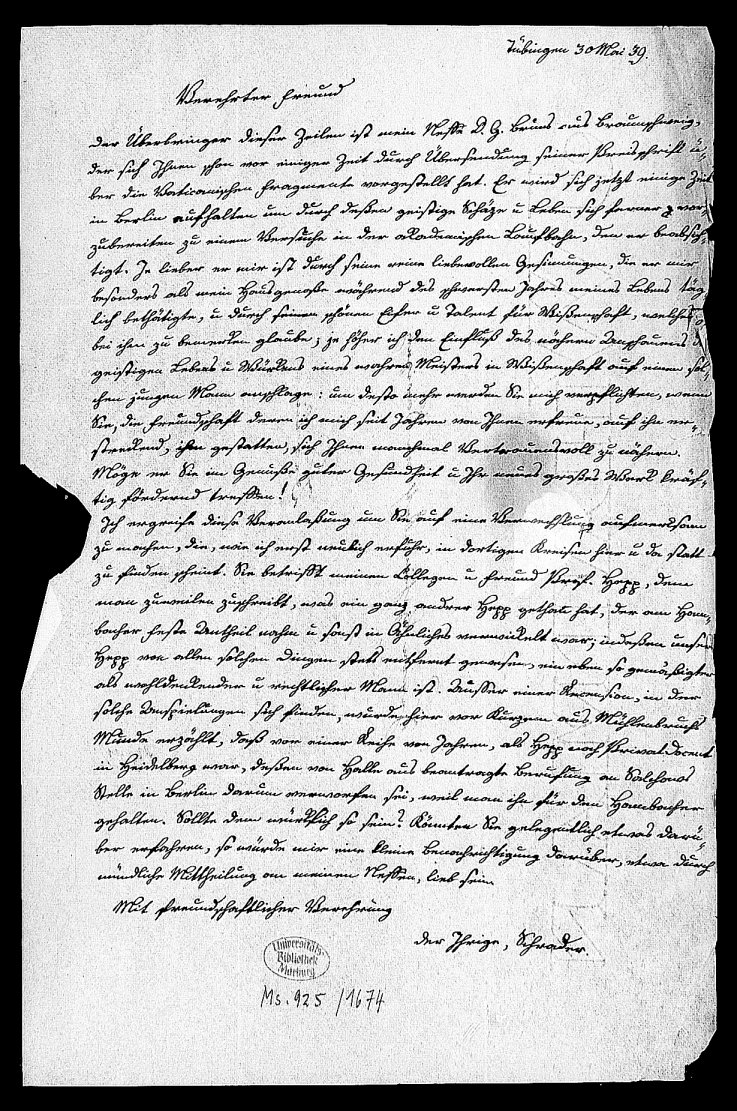 Tübingen 30 Mai 39.
Verehrter Freund
der Überbringer dieser Zeilen ist mein Neffe D. G. Bruns aus Braunschweig,
der sich Ihnen schon vor einiger Zeit durch Übersendung seiner Preisschrift ü-
ber die Vaticanischen Fragmente vorgestellt hat. Er wird sich jetzt einige Zeit
in Berlin aufhalten um durch deßen geistige Schäze u Leben sich ferner vor-
zubereiten zu einem Versuche in der akademischen Laufbahn, den er beabsich-
tigt. Je lieber er mir ist durch seine reine liebevollen Gesinnungen, die er mir
besonders als mein Hausgenoße während des schwersten Jahres meines Lebens täg-
lich bethätigte, u durch seinen schönen Eifer u Talent für Wißenschaft, welches
bei ihm zu bemerken glaube; je höher ich den Einfluß des nähern Anschauens
geistigen Lebens u Würkens eines wahren Meisters in Wißenschaft auf einen sol-
chen jungen Mann anschlage: um desto mehr werden Sie mich verpflichten, wenn
Sie, die Freundschaft deren ich mich seit Jahren von Ihnen erfreue, auf ihn er-
streckend, ihm gestatten, sich Ihnen manchmal Vertrauensvoll zu nähern.
Möge er Sie im Genuße guter Gesundheit u Ihr neues großes Werk kräf-
tig fördernd treffen!
Ich ergreife diese Veranlaßung um Sie auf eine Verwechslung aufmerksam
zu machen, die, wie ich erst neulich erfuhr, in dortigen Kreisen hier u da statt
zu finden scheint. Sie betrifft meinen Collegen u Freund Prof. Hepp, dem
man zuweilen zuschreibt, was ein ganz anderer Hepp gethan hat, der am Ham-
bacher Feste Antheil nahm u sonst in Ähnliches verwickelt war; indeßen unser
Hepp von allen solchen Dingen stets entfernt gewesen, ein eben so gemäßigter
als wohldenkender u rechtlicher Mann ist. Ausser einer Recension, in der
solche Anspielungen sich finden, wurde hier vor Kurzem aus Mühlenbruchs
Munde erzählt, daß vor einer Reihe von Jahren, als Hepp noch Privatdocent
in Heidelberg war, deßen von Halle aus beantragte Berufung an Salchows
Stelle in Berlin darum verworfen sei, weil man ihn für den Hambacher
gehalten. Sollte dem würklich so sein? Könnten Sie gelegentlich etwas darü-
ber erfahren, so würde mir eine kleine Benachrichtigung darüber, etwa durch
mündliche Mittheilung an meinen Neffen, lieb sein.
Mit freundschaftlicher Verehrung
der Ihrige, Schrader.
Universitäts-
Bibliothek
Marburg
Ms. 925/1674